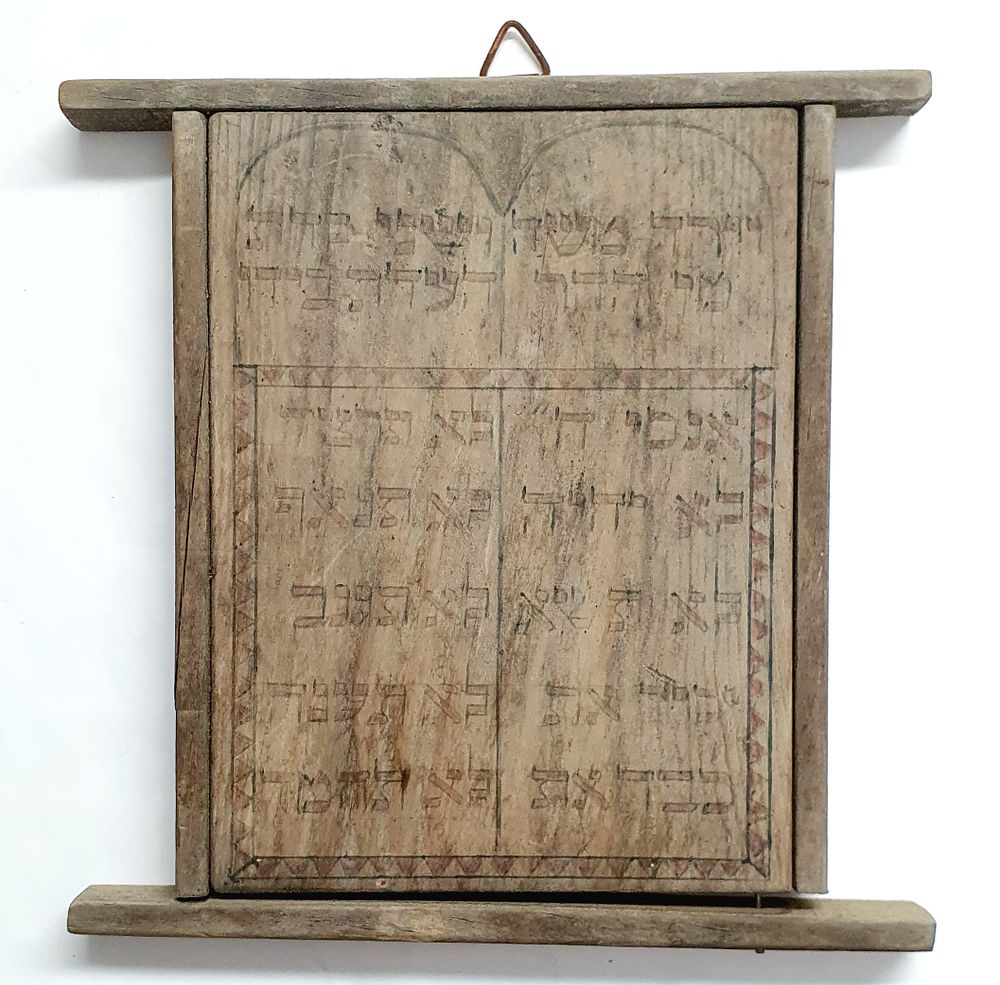 וירד משה ושני לחת
מן ההר העדת בידו
אנכי ה'
לא יהיה
לא תשא
זכור את
כבד את
לא תרצח
לא תנאף
לא תגנב
לא תענה
לא תחמד